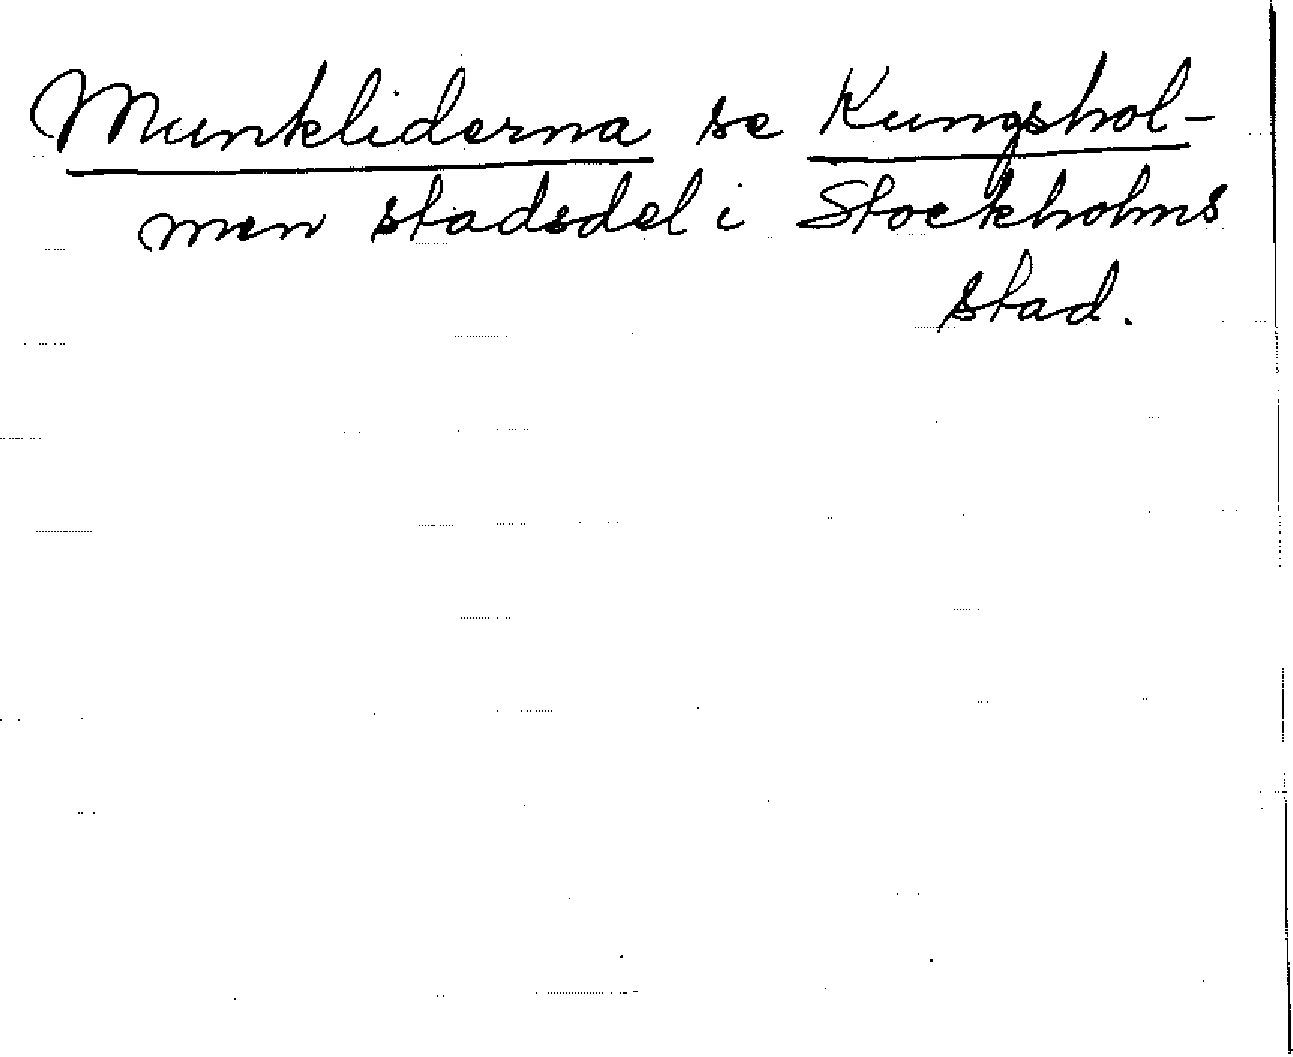 Munkliderna se Kungshol-
men stadsdel i Stockholms
stad.